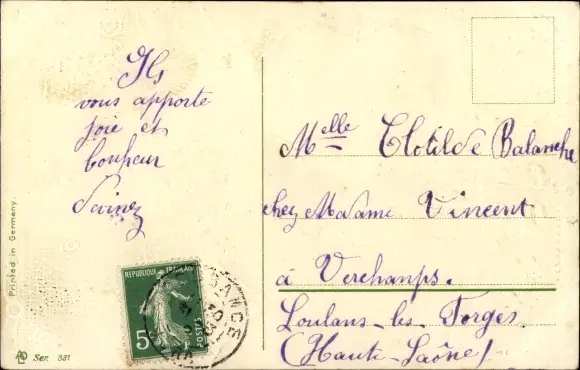 Ils
vous apporte
joie et
bonheur
Melle Clotilde Balanche
chez Madame Vincent
à Verchamps.
Loulans-les Forges
(Haute-Saône)
Printed in Germany.
REPUBLIQUE FRANÇAISE
5
POSTES
Ser. 331